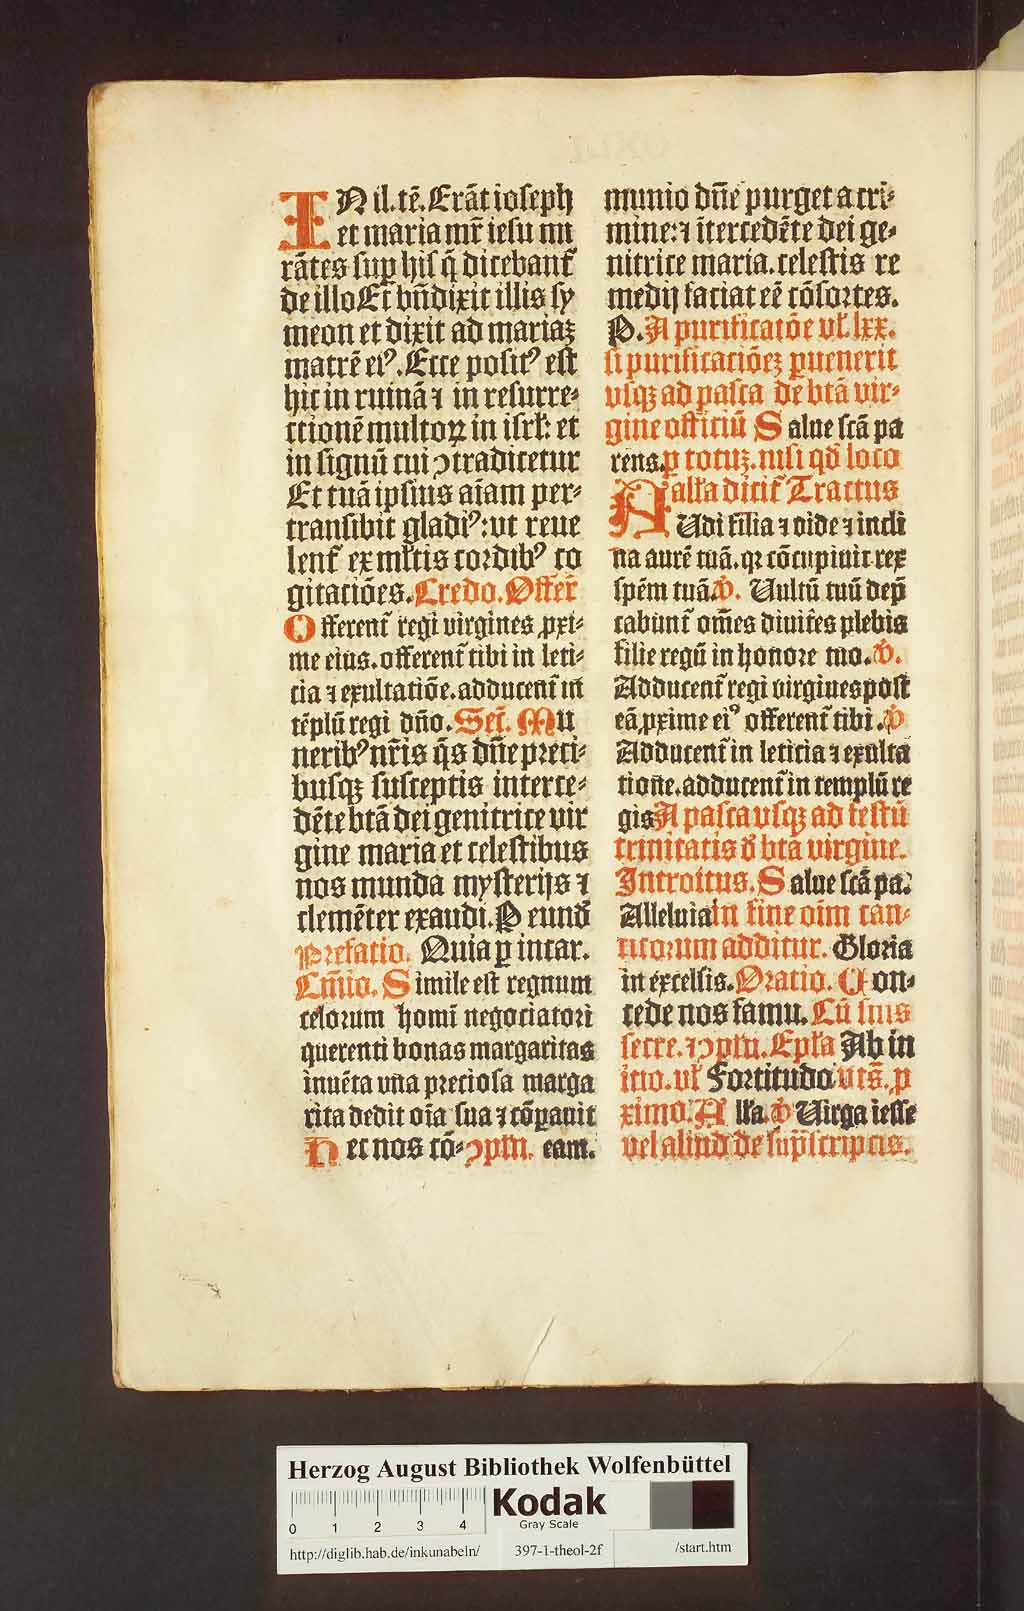 IN il. tẽ. Erãt ioseph
et maria mr̃ iesu mi
rãtes suꝑ his q̃ dicebant᷑
de illo Et bñdixit illis sy
meon et dixit ad mariaꝫ
matrẽ eiꝰ. Ecce positꝰ est
hic in ruinã ⁊ in resurre⸗
ctionẽ multoꝝ in isrl̃: et
in signũ cui ↄtradicetur
Et tuã ipsius aĩam per⸗
transibit gladiꝰ: ut reue
lent᷑ ex ml̃tis cordibꝰ co
gitatiões. Credo. Offer̃
Offerent᷑ regi virgines ꝓxi⸗
me eius. offerent᷑ tibi in leti⸗
cia ⁊ exultatiõe. adducent᷑ in
tẽplũ regi dño. Secr̃. Mu
neribꝰ nr̃is q̃s dñe preci⸗
busqꝫ susceptis interce⸗
dẽte btã dei genitrice vir
gine maria et celestibus
nos munda mysterijs ⁊
clemẽter exaudi. P eund̃
Prefatio. Quia ꝑ incar.
Cm̃io. Simile est regnum
celorum homĩ negociatori
querenti bonas margaritas
inuẽta vna preciosa marga
rita dedit oĩa sua ⁊ cõꝑauit
D et nos cõ⸗ ↄplm̃. eam.
munio dñe purget a cri⸗
mine: ⁊ ĩtercedẽte dei ge⸗
nitrice maria. celestis re
medij faciat eẽ cõsortes.
P. A purificatõe vl̃ lxx.
si purificatiõeꝫ ꝑuenerit
vsqꝫ ad pasca de btã vir⸗
gine officiũ Salue scã pa
rens. ꝑ totuꝫ. nisi qd̃ loco
all̃a dicit᷑ Tractus
AUdi filia ⁊ vide ⁊ incli
na aurẽ tuã. qꝛ cõcupiuit rex
spẽm tuã. ℣. Uultũ tuũ dep̃
cabunt᷑ om̃es diuites plebis
filie regũ in honore tuo. ℣.
Adducent᷑ regi virgines post
eã ꝓxime eiꝰ offerent᷑ tibi. ℣
Adducent᷑ in leticia ⁊ exulta
tione. adducent᷑ in templũ re
gis A pasca vsqꝫ ad festũ
trinitatis d̃ bta virgine.
Introitus. Salue scã pa.
Alleluia In fine oĩm can⸗
ticorum additur. Gloria
in excelsis. Oratio. Con⸗
cede nos famu. Cũ suis
secre. ⁊ ↄplu. Epl̃a Ab in
itio. vl̃ Fortitudo vts̃. ꝓ
ximo. A ll̃a. ℣ Uirga iesse
vel aliud de sup̃scriptis.
Herzog August Bibliothek Wolfenbüttel
0 1 2 3 4
Kodak
Gray Scale
http://diglib.hab.de/inkunabeln/ 397-1-theol-2f /start.htm